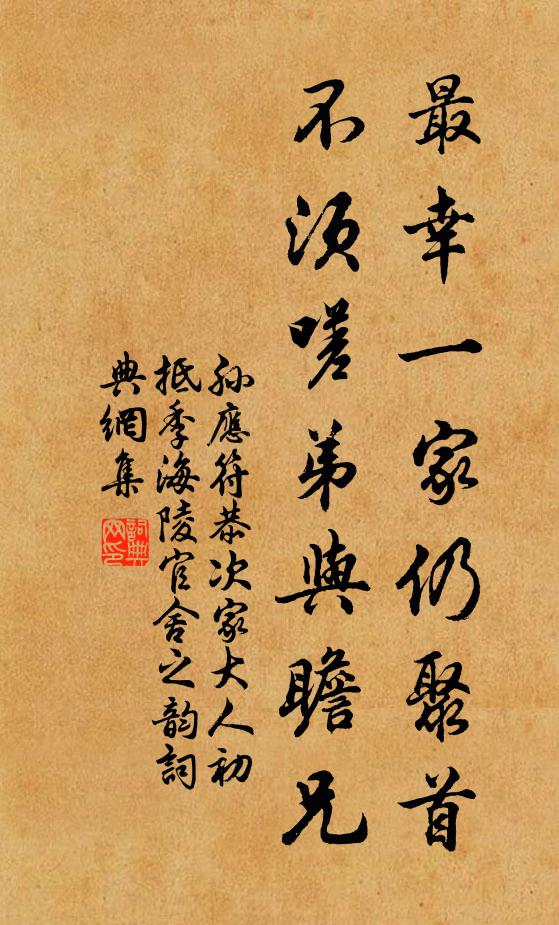 最幸一家仍聚首
不須嗟弟與瞻兄
孫應符恭次家大人初
抵季海陵官舍之韵詞
典網集
詞典網印